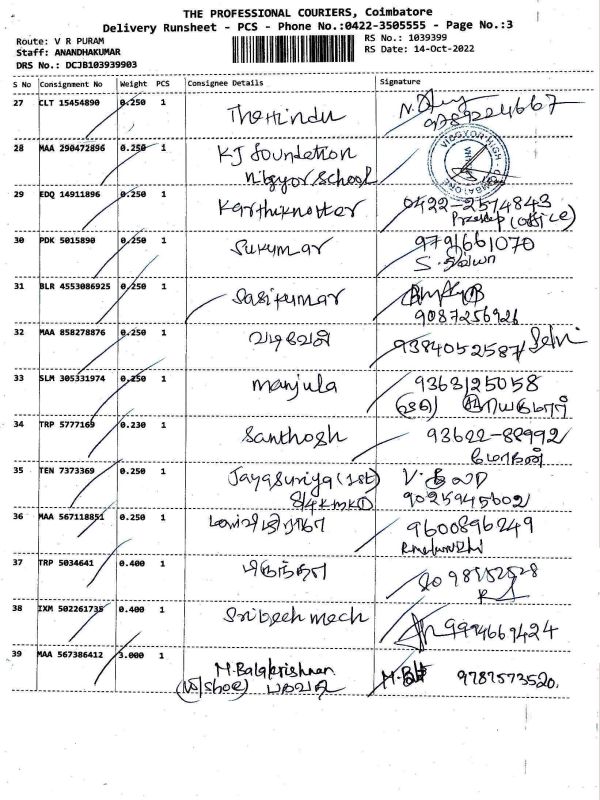 THE PROFESSIONAL COURIERS, Coimbatore
Delivery Runsheet - PCS - Phone No.:0422-3505555 - Page No.:3
Route: V R PURAM
Staff: ANANDHAKUMAR
DRS No.: DCJB103939903
RS No.: 1039399
RS Date: 14-Oct-2022
S No Consignment No Weight PCS Consignee Details Signature
27 CLT 15454890 0.250 1 The Hindu 9789224667
28 MAA 290472896 0.250 1 KJ foundetion
Nibgyor School
29 EDQ 14911896 0.250 1 Karthiknotter 0422-2574843
(office)
30 PDK 5015890 0.250 1 Sukumar 9791661070
31 BLR 4553086925 0.250 1 Sasikumar
9087256926
32 MAA 858278876 0.250 1 வடிவேல் 9384052587 Selvi
33 SLM 305331974 0.250 1 manjula 9363125058
34 TRP 5777169 0.230 1 Santhosh 93622-88992
மோகன்
35 TEN 7373369 0.250 1 Jayasuriya (1st)
9025945602
36 MAA 567118851 0.250 1 9600896249
37 TRP 5034641 0.400 1
38 IXM 502261735 0.400 1 mech 9994669424
39 MAA 567386412 3.000 1 M.Balakrishnan
9787573520.